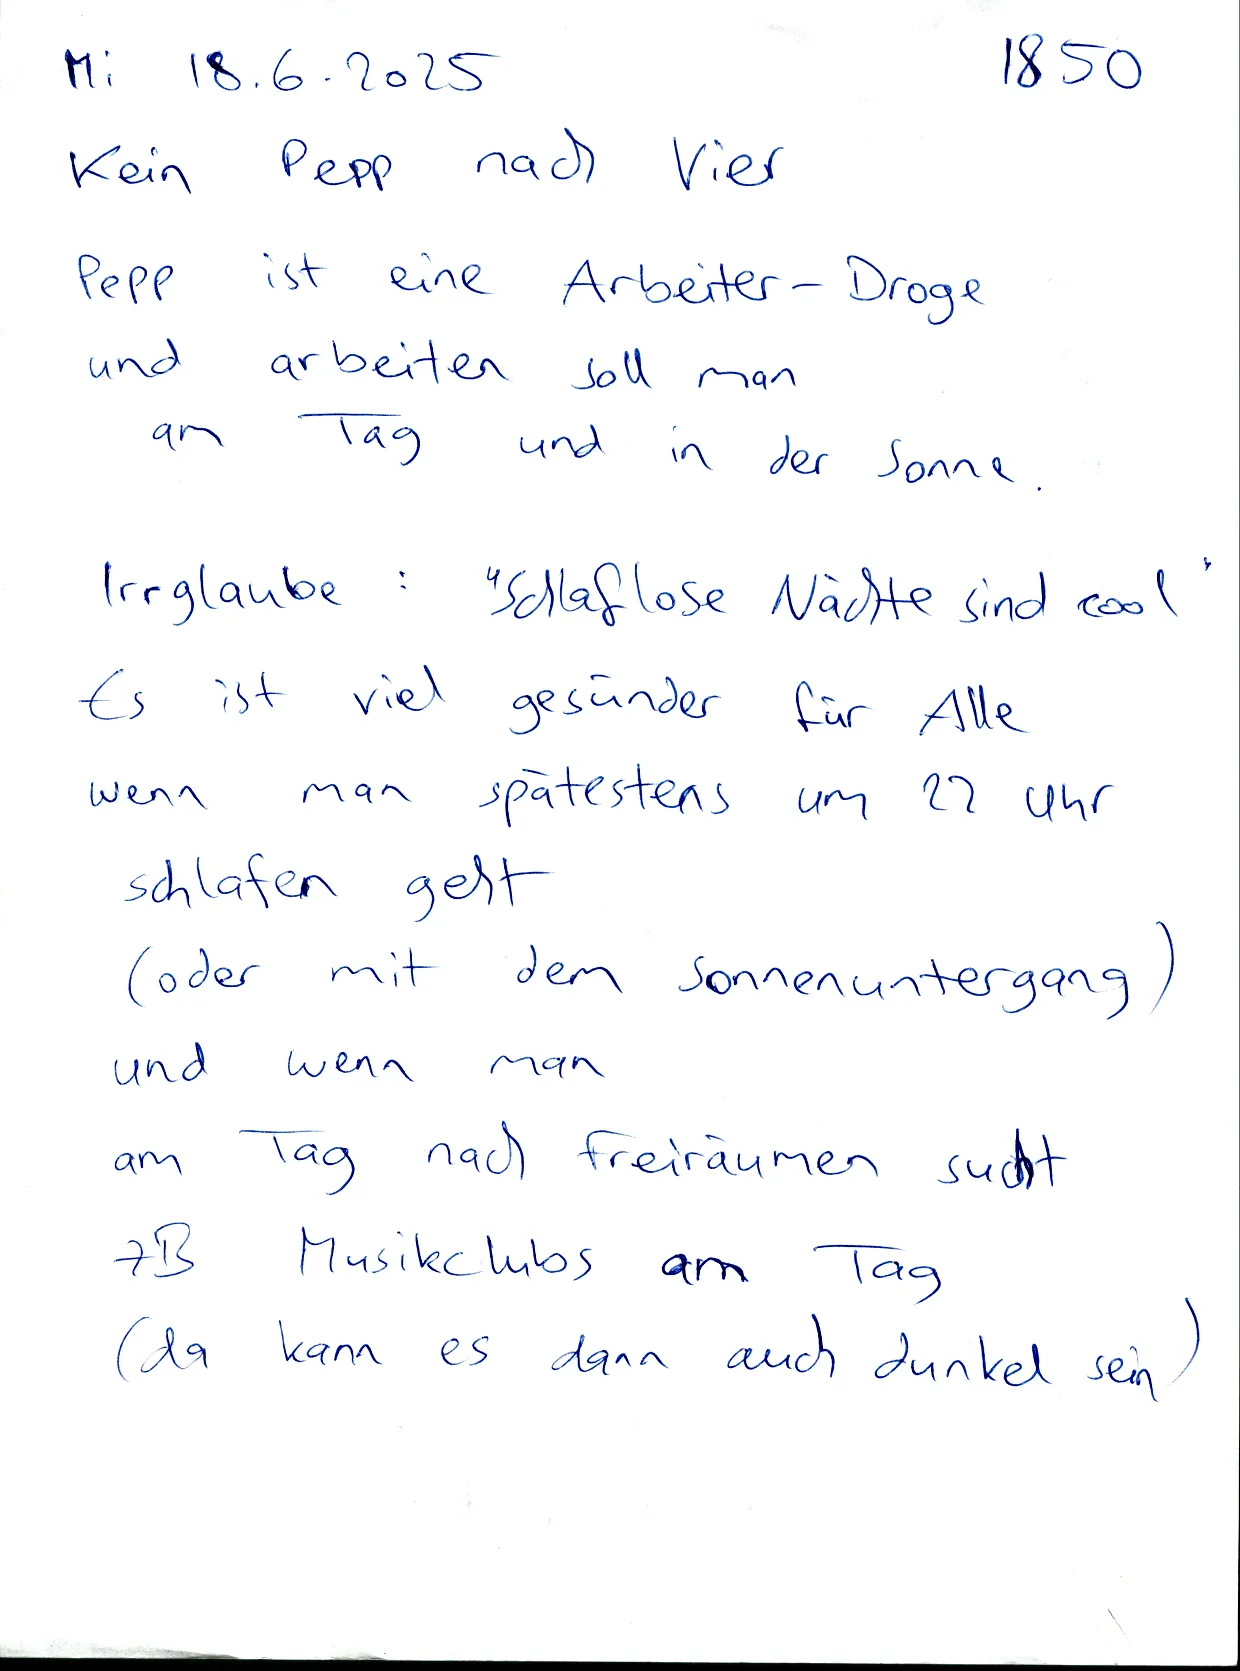 Mi 18.6.2025 1850
Kein Pepp nach Vier
Pepp ist eine Arbeiter-Droge
und arbeiten soll man
am Tag und in der Sonne.
Irrglaube : "Schlaflose Nächte sind cool"
Es ist viel gesünder für Alle
wenn man spätestens um 22 Uhr
schlafen geht
(oder mit dem Sonnenuntergang)
und wenn man
am Tag nach Freiräumen sucht
zB Musikclubs am Tag
(da kann es dann auch dunkel sein)